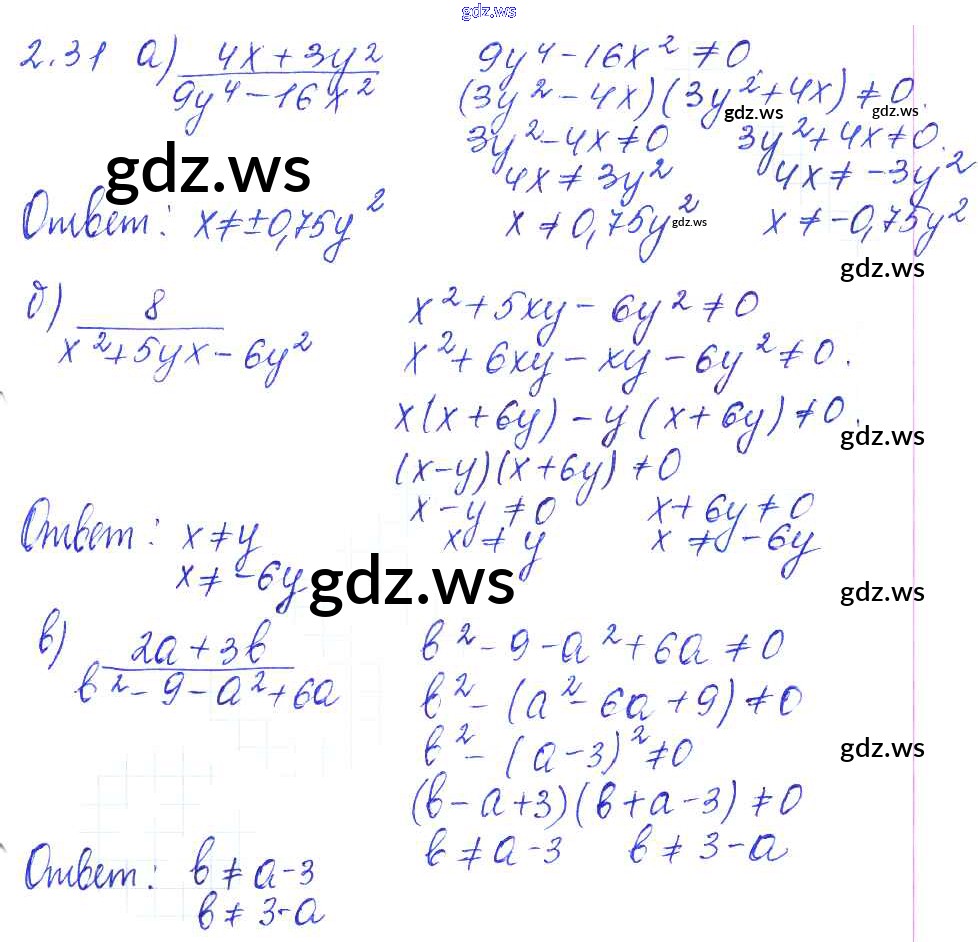 gdz.ws
2.31 а) (4x + 3y²)/(9y⁴ - 16x²) 9y⁴ - 16x² ≠ 0
(3y² - 4x)(3y² + 4x) ≠ 0.
gdz.ws gdz.ws
3y² - 4x ≠ 0 3y² + 4x ≠ 0.
gdz.ws
4x ≠ 3y² 4x ≠ -3y²
Ответ: x ≠ ±0,75y² x ≠ 0,75y² gdz.ws x ≠ -0,75y²
gdz.ws
б) 8/(x² + 5yx - 6y²) x² + 5xy - 6y² ≠ 0
x² + 6xy - xy - 6y² ≠ 0.
x(x + 6y) - y(x + 6y) ≠ 0.
gdz.ws
(x - y)(x + 6y) ≠ 0
x - y ≠ 0 x + 6y ≠ 0
Ответ: x ≠ y x ≠ y x ≠ -6y
x ≠ -6y gdz.ws gdz.ws
в) (2a + 3b)/(b² - 9 - a² + 6a) b² - 9 - a² + 6a ≠ 0
b² - (a² - 6a + 9) ≠ 0
b² - (a - 3)² ≠ 0 gdz.ws
(b - a + 3)(b + a - 3) ≠ 0
b ≠ a - 3 b ≠ 3 - a
Ответ: b ≠ a - 3
b ≠ 3 - a